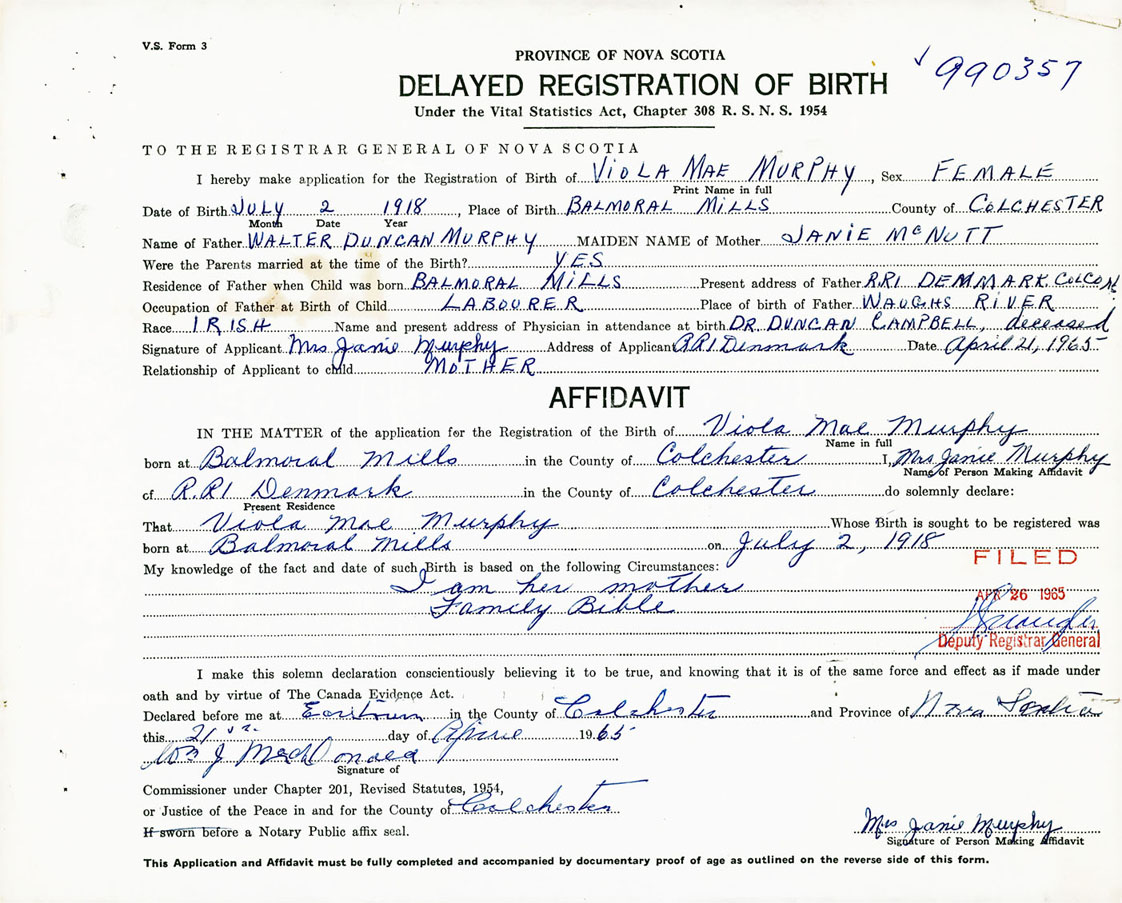 V.S. Form 3
PROVINCE OF NOVA SCOTIA
990357
DELAYED REGISTRATION OF BIRTH
Under the Vital Statistics Act, Chapter 308 R. S. N. S. 1954
TO THE REGISTRAR GENERAL OF NOVA SCOTIA
I hereby make application for the Registration of Birth of VIOLA MAE MURPHY, Sex FEMALE
Print Name in full
Date of Birth JULY 2 1918, Place of Birth BALMORAL MILLS County of COLCHESTER
Month Date Year
Name of Father WALTER DUNCAN MURPHY MAIDEN NAME of Mother JANIE McNUTT
Were the Parents married at the time of the Birth? YES
Residence of Father when Child was born BALMORAL MILLS Present address of Father RR1 DENMARK COLCO
Occupation of Father at Birth of Child LABOURER Place of birth of Father WAUGHS RIVER
Race IRISH Name and present address of Physician in attendance at birth DR. DUNCAN CAMPBELL, deceased
Signature of Applicant Mrs Janie Murphy Address of Applicant RR1 Denmark Date April 21, 1965
Relationship of Applicant to child MOTHER
AFFIDAVIT
IN THE MATTER of the application for the Registration of the Birth of Viola Mae Murphy
Name in full
born at Balmoral Mills in the County of Colchester I, Mrs Janie Murphy
Name of Person Making Affidavit
of R.R1 Denmark in the County of Colchester do solemnly declare:
Present Residence
That Viola Mae Murphy Whose Birth is sought to be registered was
born at Balmoral Mills on July 2, 1918
FILED
My knowledge of the fact and date of such Birth is based on the following Circumstances:
I am her mother
APR 26 1965
Family Bible
Deputy Registrar General
I make this solemn declaration conscientiously believing it to be true, and knowing that it is of the same force and effect as if made under
oath and by virtue of The Canada Evidence Act.
Declared before me at Earltown in the County of Colchester and Province of Nova Scotia
this 21st day of April 1965
Wm J MacDonald
Signature of
Commissioner under Chapter 201, Revised Statutes, 1954,
or Justice of the Peace in and for the County of Colchester
If sworn before a Notary Public affix seal.
Mrs Janie Murphy
Signature of Person Making Affidavit
This Application and Affidavit must be fully completed and accompanied by documentary proof of age as outlined on the reverse side of this form.